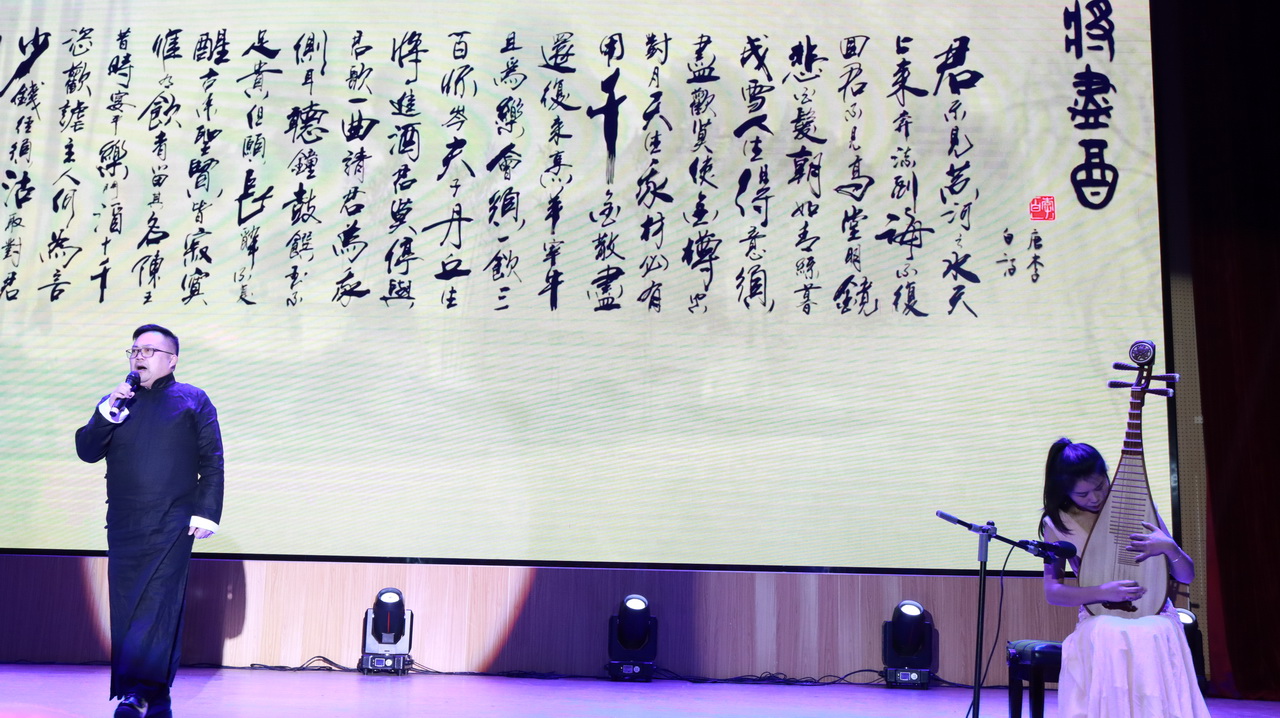 將盡酉
唐李
白詩
李白
君不見黄河之水天
上来奔流到海不復
回君不見高堂明鏡
悲白髮朝如青絲暮
成雪人生得意須
盡歡莫使金樽空
對月天生我材必有
用千金散盡
還復来烹羊宰牛
且為樂會須一飲三
百杯岑夫子丹丘生
將進酒君莫停與
君歌一曲請君為我
側耳聽鐘鼓饌玉不
足貴但願長醉不
醒古来聖賢皆寂寞
惟有飲者留其名陳王
昔時宴平樂斗酒十千
恣歡謔主人何為言
少錢径須沽取對君